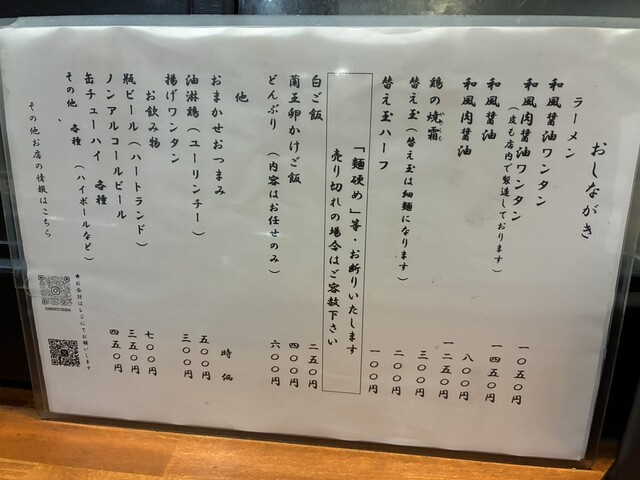 おしながき
ラーメン
和風醤油ワンタン 一〇五〇円
和風肉醤油ワンタン 一四五〇円
(皮も店内で製造しております)
和風醤油 八〇〇円
和風肉醤油 一二五〇円
鶏の焼霜 三〇〇円
替え玉(替え玉は細麺になります) 二〇〇円
替え玉ハーフ 一〇〇円
「麺硬め」等・お断りいたします
売り切れの場合はご容赦下さい
白ご飯 二五〇円
蘭王卵かけご飯 四〇〇円
どんぶり(内容はお任せのみ) 六〇〇円
他
おまかせおつまみ 時価
油淋鶏(ユーリンチー) 五〇〇円
揚げワンタン 三〇〇円
お飲み物
瓶ビール(ハートランド) 七〇〇円
ノンアルコールビール 三五〇円
缶チューハイ 各種 四五〇円
その他、各種(ハイボールなど)
その他お店の情報はこちら
★お会計はレジにてお願いします